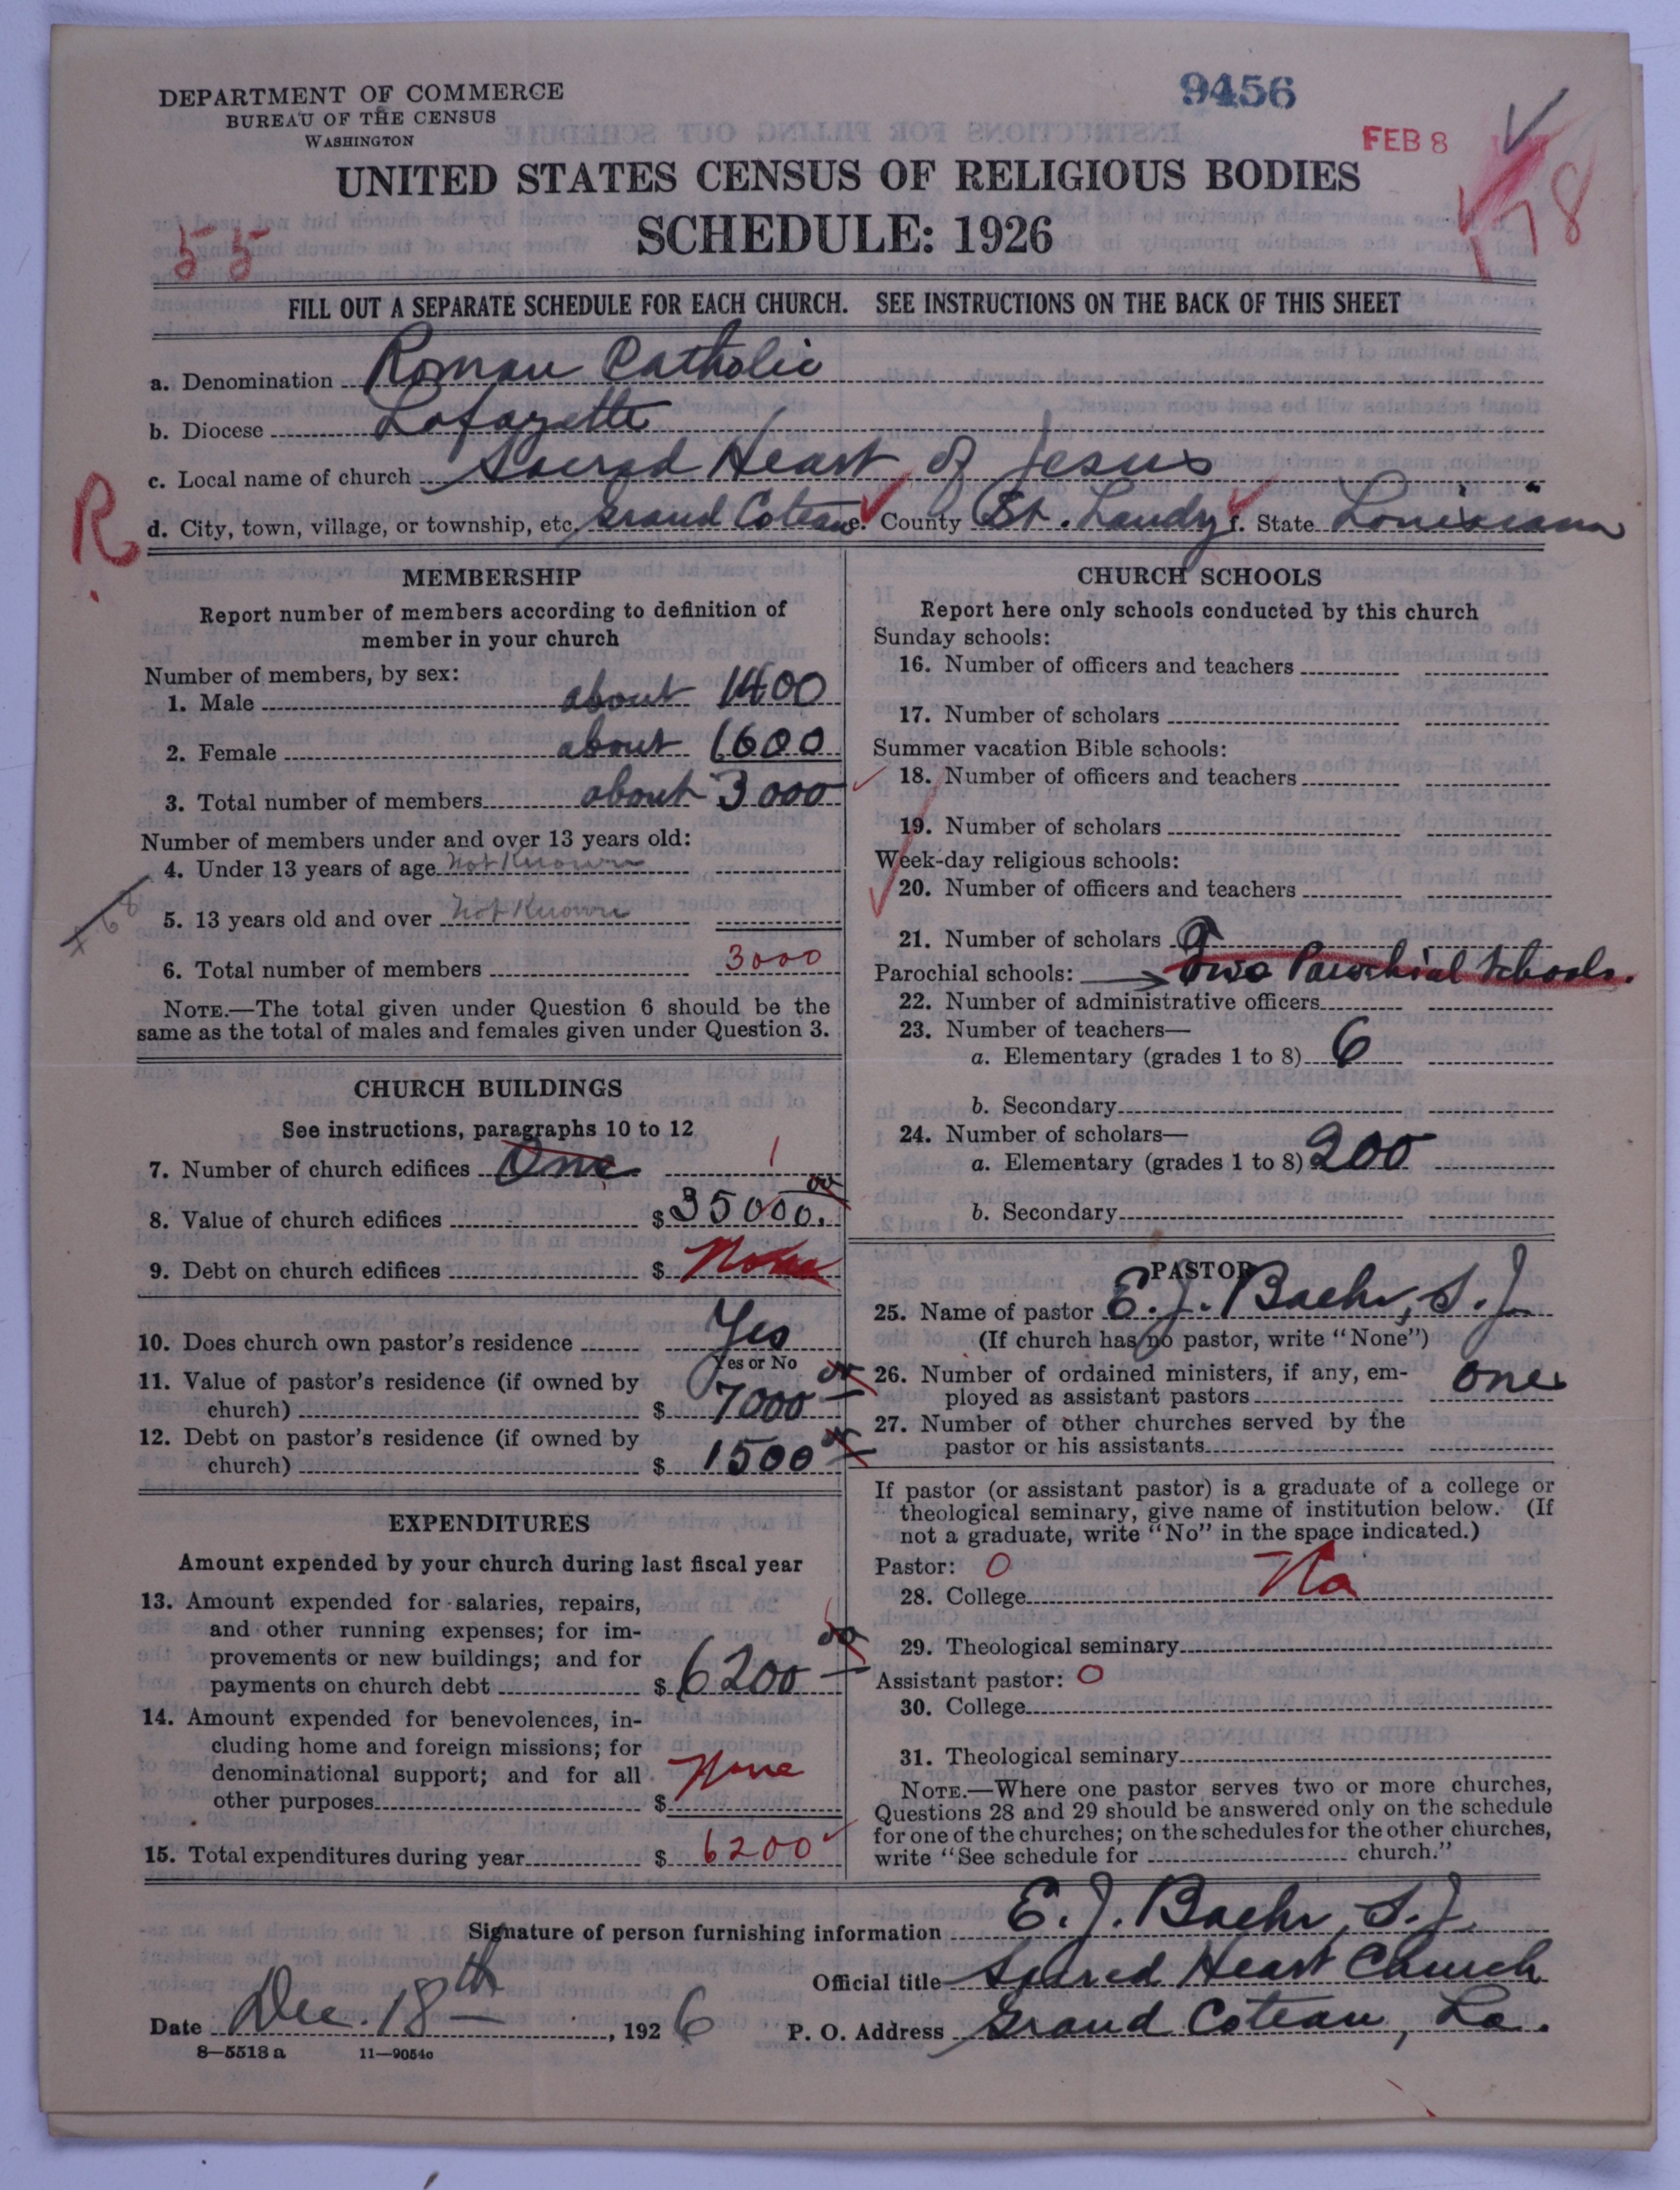 DEPARTMENT OF COMMERCE
BUREAU OF THE CENSUS
WASHINGTON
9456
FEB 8
UNITED STATES CENSUS OF RELIGIOUS BODIES
SCHEDULE: 1926
55
FILL OUT A SEPARATE SCHEDULE FOR EACH CHURCH. SEE INSTRUCTIONS ON THE BACK OF THIS SHEET
a. Denomination Roman Catholic
b. Diocese Lafayette
c. Local name of church Sacred Heart of Jesus
R
d. City, town, village, or township, etc. Grand Coteau e. County St. Landry f. State Louisiana
MEMBERSHIP
Report number of members according to definition of
member in your church
Number of members, by sex:
1. Male about 1400
2. Female about 1600
3. Total number of members about 3000
Number of members under and over 13 years old:
4. Under 13 years of age Not Known
5. 13 years old and over Not Known
6. Total number of members 3000
NOTE.—The total given under Question 6 should be the
same as the total of males and females given under Question 3.
CHURCH BUILDINGS
See instructions, paragraphs 10 to 12
7. Number of church edifices One 1
8. Value of church edifices $ 35000.00
9. Debt on church edifices $ None
10. Does church own pastor's residence Yes
Yes or No
11. Value of pastor's residence (if owned by
church) $ 7000 00
12. Debt on pastor's residence (if owned by
church) $ 1500 00
EXPENDITURES
Amount expended by your church during last fiscal year
13. Amount expended for salaries, repairs,
and other running expenses; for im-
provements or new buildings; and for
payments on church debt $ 6200 00
14. Amount expended for benevolences, in-
cluding home and foreign missions; for
denominational support; and for all
other purposes $ None
15. Total expenditures during year $ 6200
CHURCH SCHOOLS
Report here only schools conducted by this church
Sunday schools:
16. Number of officers and teachers
17. Number of scholars
Summer vacation Bible schools:
18. Number of officers and teachers
19. Number of scholars
Week-day religious schools:
20. Number of officers and teachers
21. Number of scholars
Parochial schools: Two Parochial Schools.
22. Number of administrative officers
23. Number of teachers—
a. Elementary (grades 1 to 8) 6
b. Secondary
24. Number of scholars—
a. Elementary (grades 1 to 8) 200
b. Secondary
PASTOR
25. Name of pastor E. J. Baehr, S.J.
(If church has no pastor, write "None")
26. Number of ordained ministers, if any, em-
ployed as assistant pastors one
27. Number of other churches served by the
pastor or his assistants
If pastor (or assistant pastor) is a graduate of a college or
theological seminary, give name of institution below. (If
not a graduate, write "No" in the space indicated.)
Pastor: 0
28. College No
29. Theological seminary
Assistant pastor: 0
30. College
31. Theological seminary
NOTE.—Where one pastor serves two or more churches,
Questions 28 and 29 should be answered only on the schedule
for one of the churches; on the schedules for the other churches,
write "See schedule for church."
Signature of person furnishing information E. J. Baehr, S.J.
Official title Sacred Heart Church
Date Dec. 18th, 1926
P. O. Address Grand Coteau, La.
8—5518 a 11—9054c